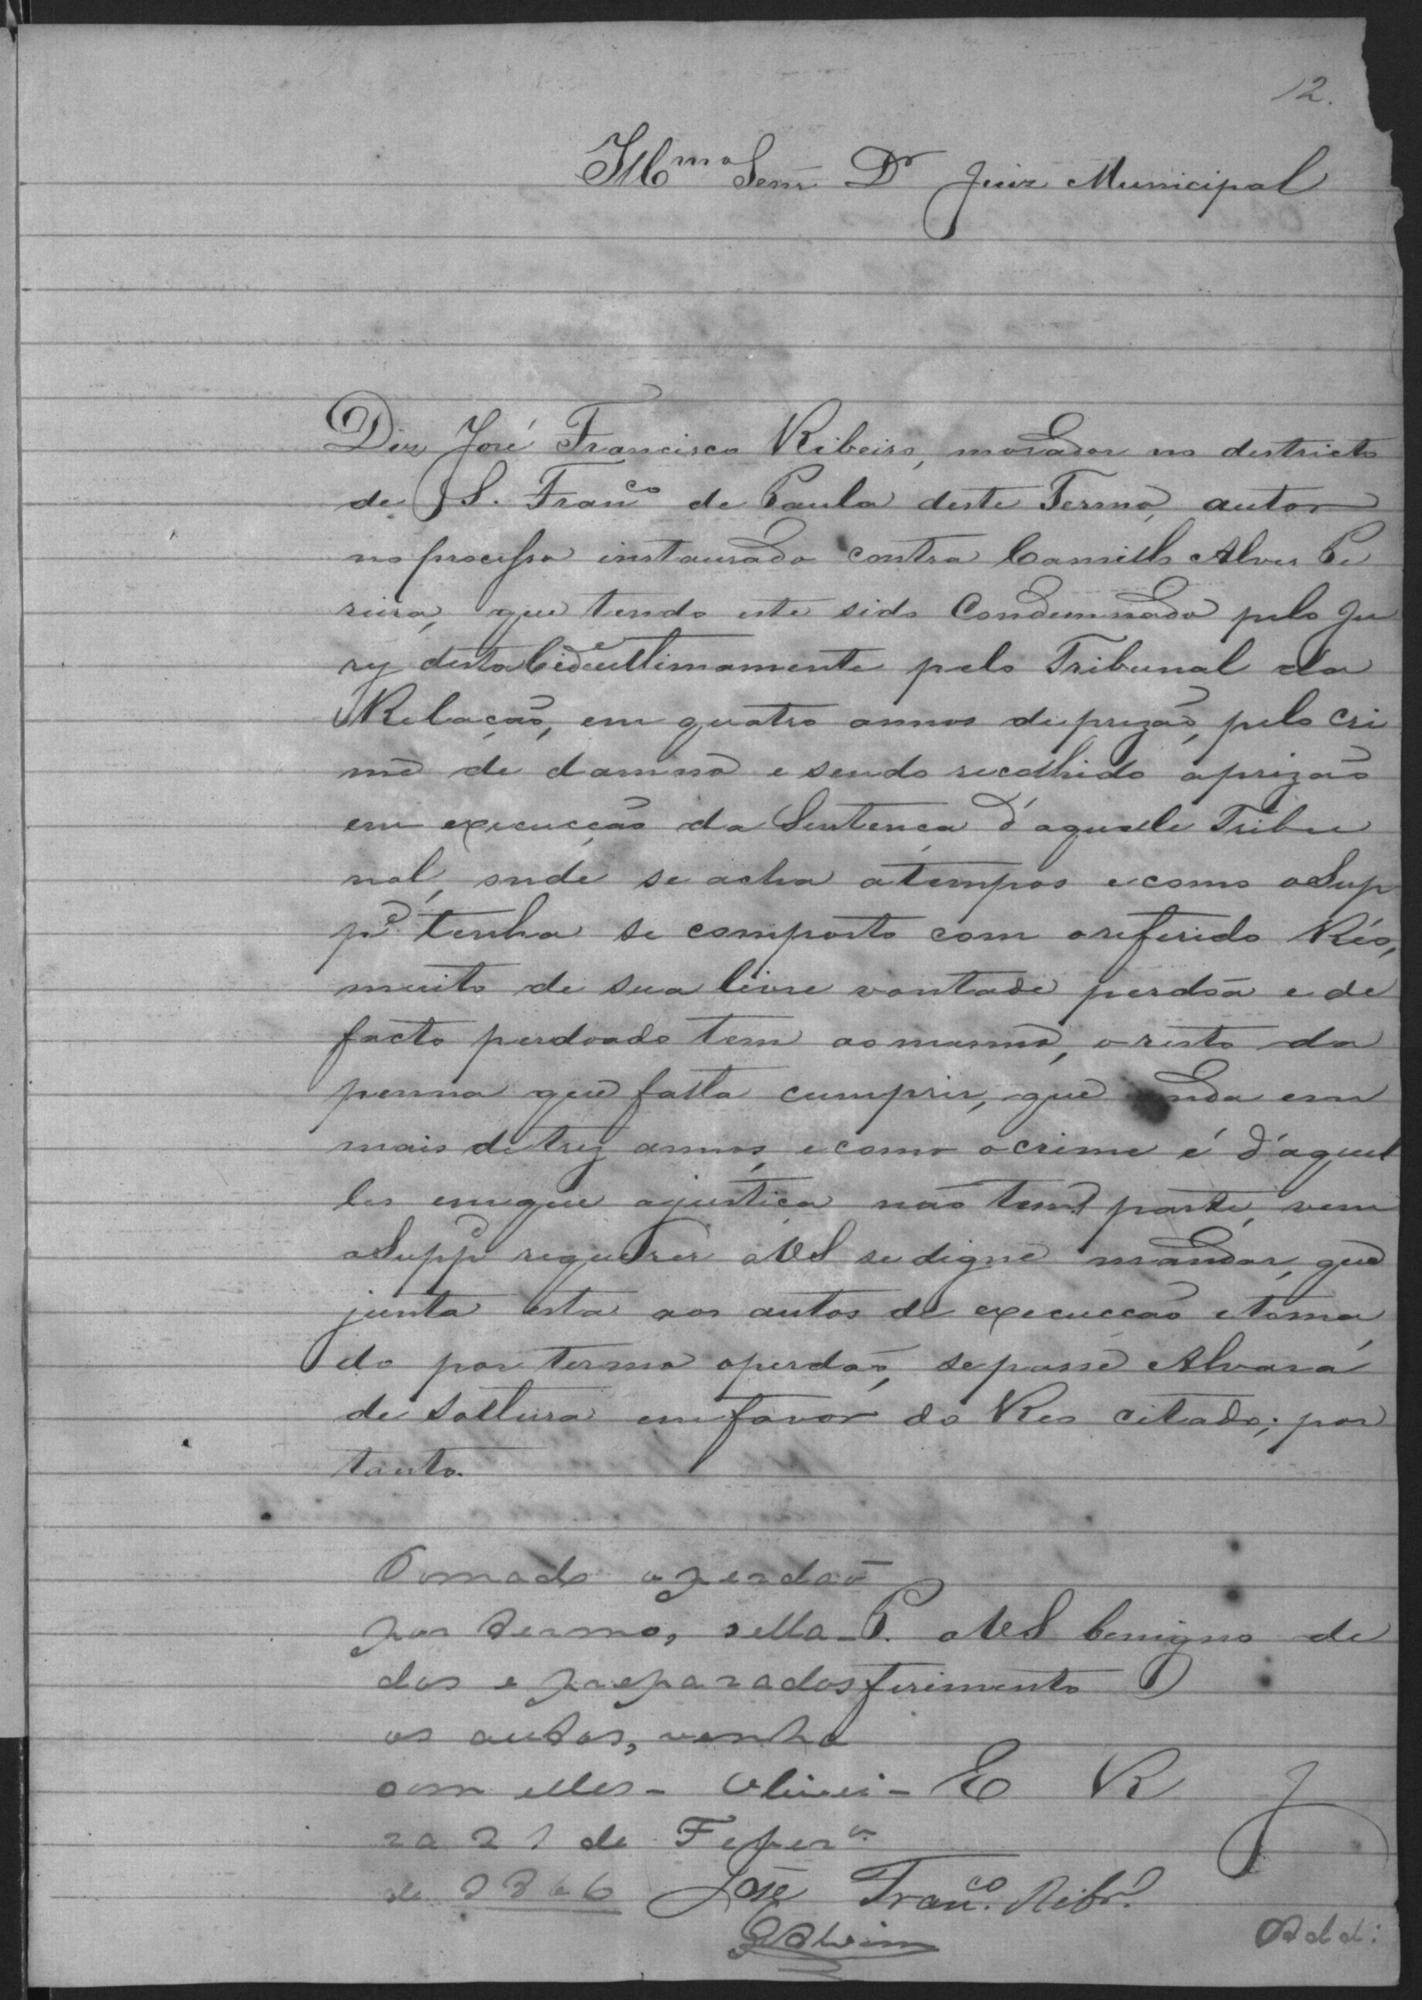 12.
Illmo Senr Dr Juiz Municipal
Diz José Francisco Ribeiro, morador no destricto
de S. Franco de Paula deste Termo, autor
no processo instaurado contra Camillo Alves Pe
reira, que tendo este sido Condemnado pelo Ju
ry desta Cide e ultimamente pelo Tribunal da
Relação, em quatro annos de prizão, pelo cri
me de damno e sendo recolhido aprizão
em execucção da Sentença d'aquelle Tribu
nal, onde se acha a tempos e como o Sup
pe tenha se composto com o referido Réo,
muito de sua livre vontade perdôa e de
facto perdoado tem ao mesmo, o resto da
penna que falta cumprir, que anda em
mais de trez annos, e como o crime é d'aquel
les em que a justiça não tem parte, vem
o Suppe requerer a VS se digne mandar, que
junta esta aos autos de execucção e toma
do por termo o perdão, se passe Alvará
de soltura em favor do Reo citado; por
tanto.
Tomado o perdão
por termo, sella-
dos e preparados
os autos, venha
com elles - Olivei-
ra 21 de Feverº
de 1886
P. a VS benigno de
ferimento
E R J
José Franco. Ribro.